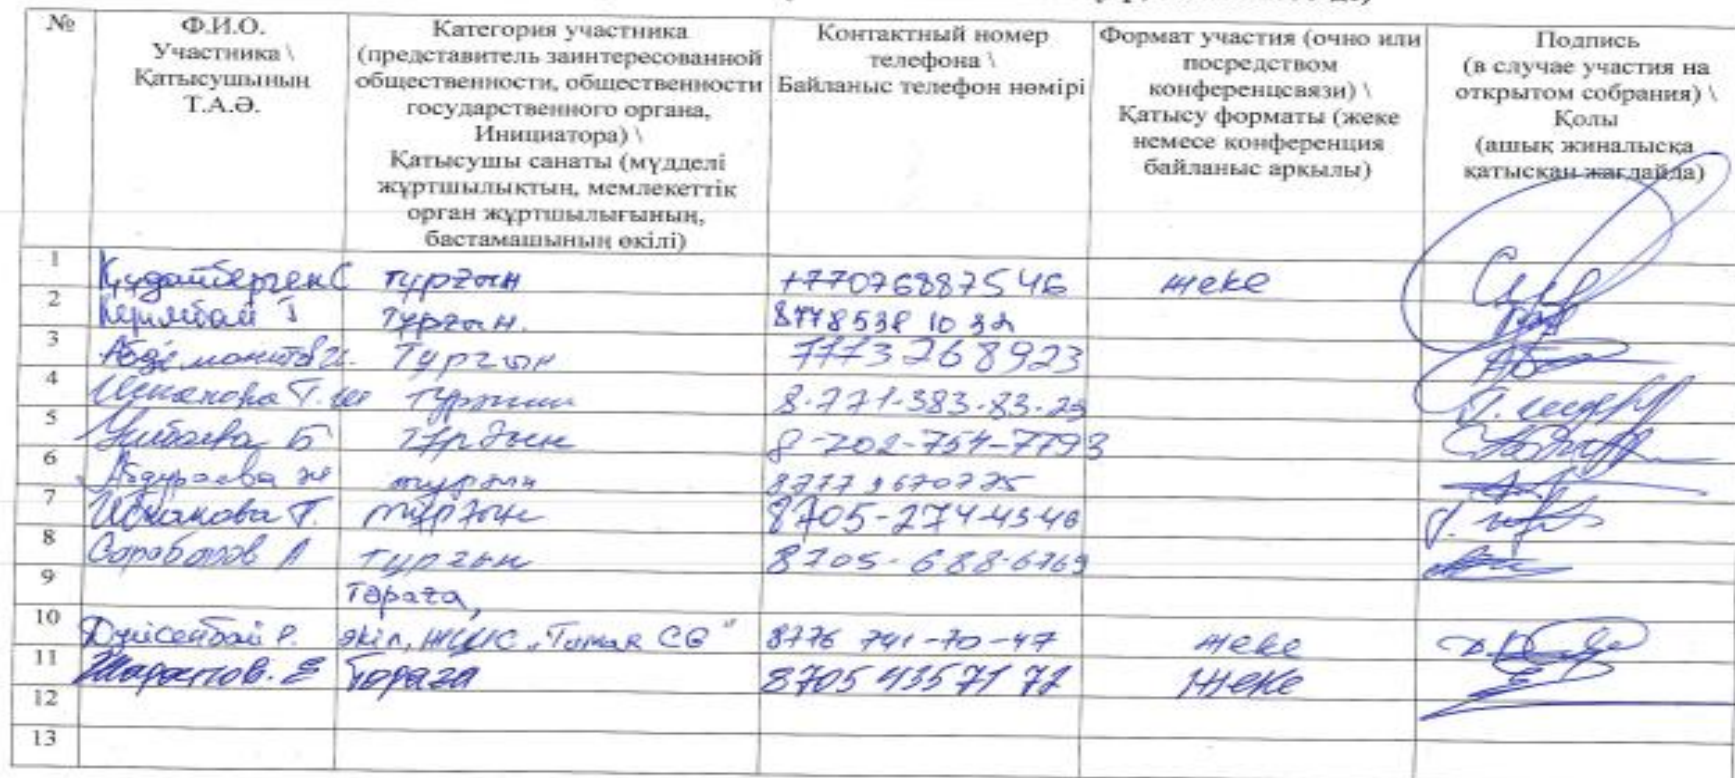 №
Ф.И.О.
Участника \
Қатысушының
Т.А.Ә.
Категория участника
(представитель заинтересованной
общественности, общественности
государственного органа,
Инициатора) \
Қатысушы санаты (мүдделі
жұртшылықтың, мемлекеттік
орган жұртшылығының,
бастамашының өкілі)
Контактный номер
телефона \
Байланыс телефон нөмірі
Формат участия (очно или
посредством
конференцсвязи) \
Қатысу форматы (жеке
немесе конференция
байланыс арқылы)
Подпись
(в случае участия на
открытом собрания) \
Қолы
(ашық жиналысқа
қатысқан жағдайда)
1 Құдайберген С тұрғын +77076887546 жеке
2 Керимбай Т тұрғын. 8778538 10 32
3 Тұрғын 7773268923
4 Т. тұрғын 8-771-383-83-23
5 Б тұрғын 8-702-754-7793
6 тұрғын 87779670775
7 Искакова Т. тұрғын 8705-274-4346
8 тұрғын 8705-688-6769
9
Төраға,
10 Дүйсенбай Р. өкіл, ЖШС „Тимак СВ" 8776 741-70-47 жеке
11 Шарапов. Е Төраға 8705 4357172 Жеке
12
13